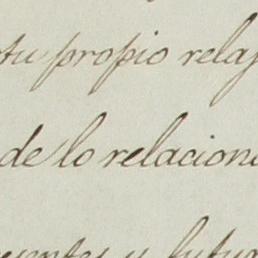 tu propio relaj
de lo relacion
y futur